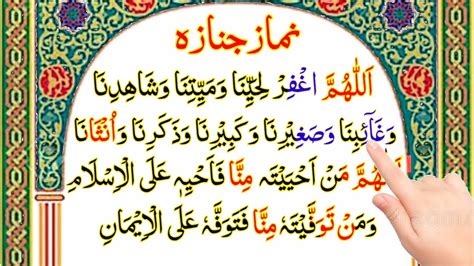 نماز جنازہ
اَللّٰهُمَّ اغْفِرْ لِحَيِّنَا وَمَيِّتِنَا وَشَاهِدِنَا
وَغَآئِبِنَا وَصَغِيْرِنَا وَكَبِيْرِنَا وَذَكَرِنَا وَاُنْثَانَا
اَللّٰهُمَّ مَنْ اَحْيَيْتَهٗ مِنَّا فَاَحْيِهٖ عَلَى الْاِسْلَامِ
وَمَنْ تَوَفَّيْتَهٗ مِنَّا فَتَوَفَّهٗ عَلَى الْاِيْمَانِ